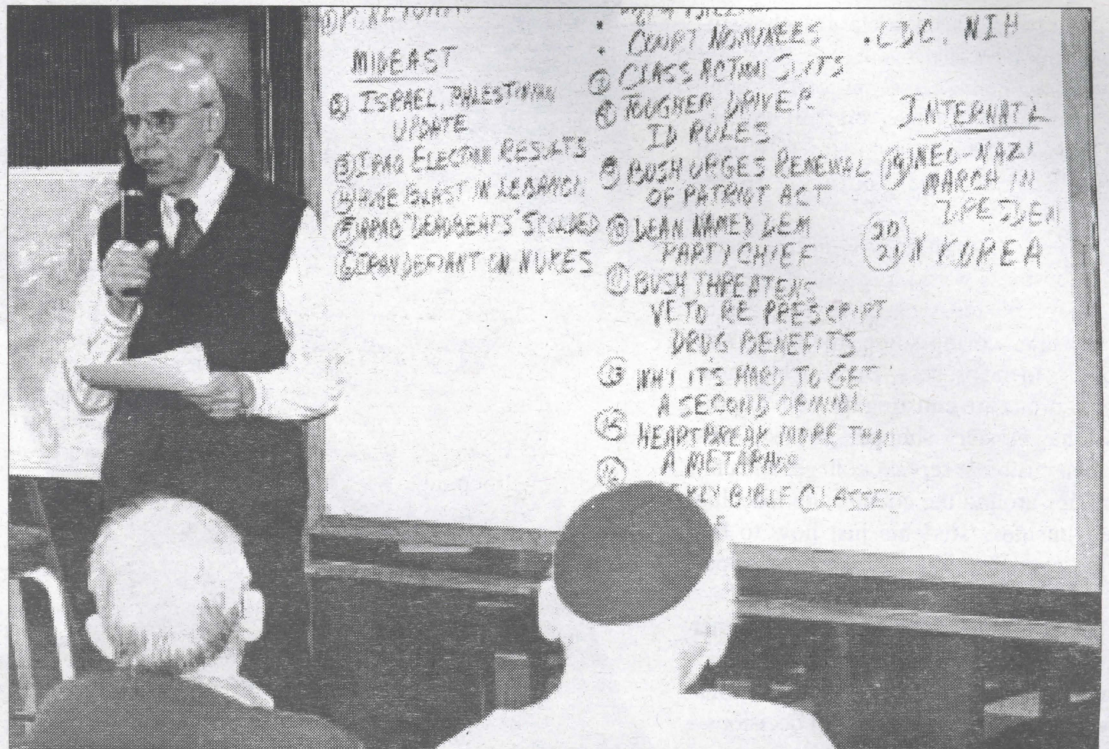 MIDEAST
③ ISRAEL, PALESTINIAN
UPDATE
③ IRAQ ELECTION RESULTS
④ HUGE BLAST IN LEBANON
⑤ ARAB "DEADBEATS" SCOLDED
⑥ IRAN DEFIANT ON NUKES
• COURT NOMINEES
CLASS ACTION SUITS
TOUGHER DRIVER
ID RULES
BUSH URGES RENEWAL
OF PATRIOT ACT
⑩ DEAN NAMED DEM
PARTY CHIEF
⑪ BUSH THREATENS
VETO RE PRESCRIPT
DRUG BENEFITS
⑬ WHY IT'S HARD TO GET
A SECOND OPINION
⑮ HEARTBREAK MORE THAN
A METAPHOR
⑯
BIBLE CLASSES
• CDC, NIH
INTERNAT'L
⑲ NEO-NAZI
MARCH IN
DRESDEN
20
21 N KOREA